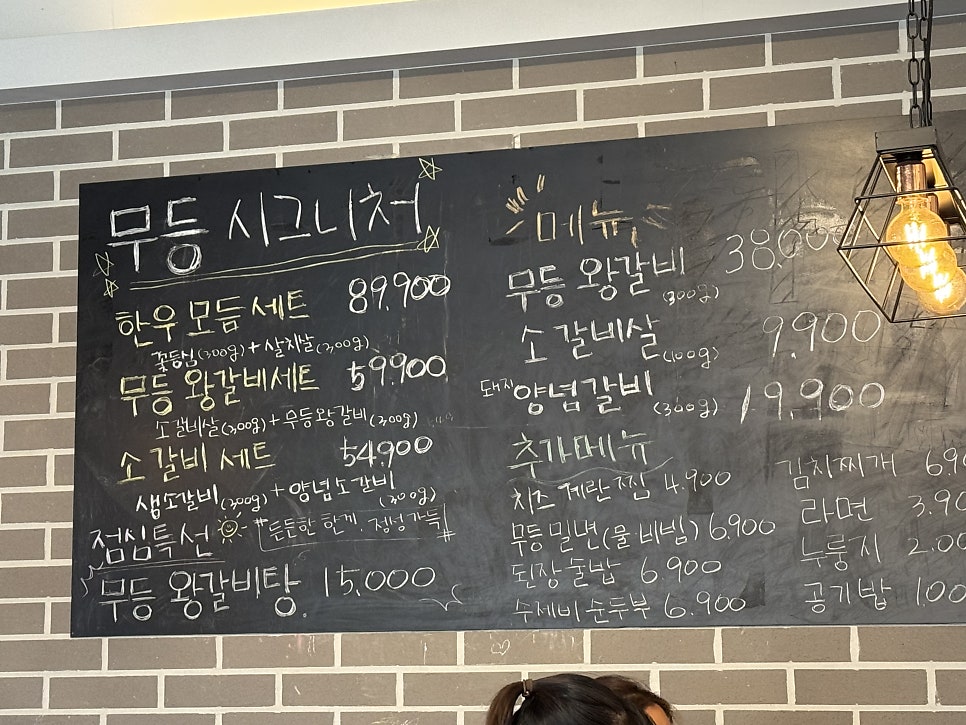 무등 시그니처
한우 모듬 세트 89.900
꽃등심(300g) + 살치살(300g)
무등 왕갈비세트 59.900
소갈비살(300g) + 무등왕갈비(300g)
소 갈비 세트 54.900
생소갈비(300g) + 양념소갈비(300g)
점심특선
"든든한 한끼. 정성가득"
무등 왕갈비탕 15,000
메뉴
무등 왕갈비 (300g) 38.000
소 갈비살 (100g) 9.900
돼지 양념갈비 (300g) 19.900
추가메뉴
치즈 계란찜 4.900
무등 밀면(물.비빔) 6.900
된장술밥 6.900
수제비순두부 6.900
김치찌개 6.90
라면 3.90
누룽지 2.00
공기밥 1.00